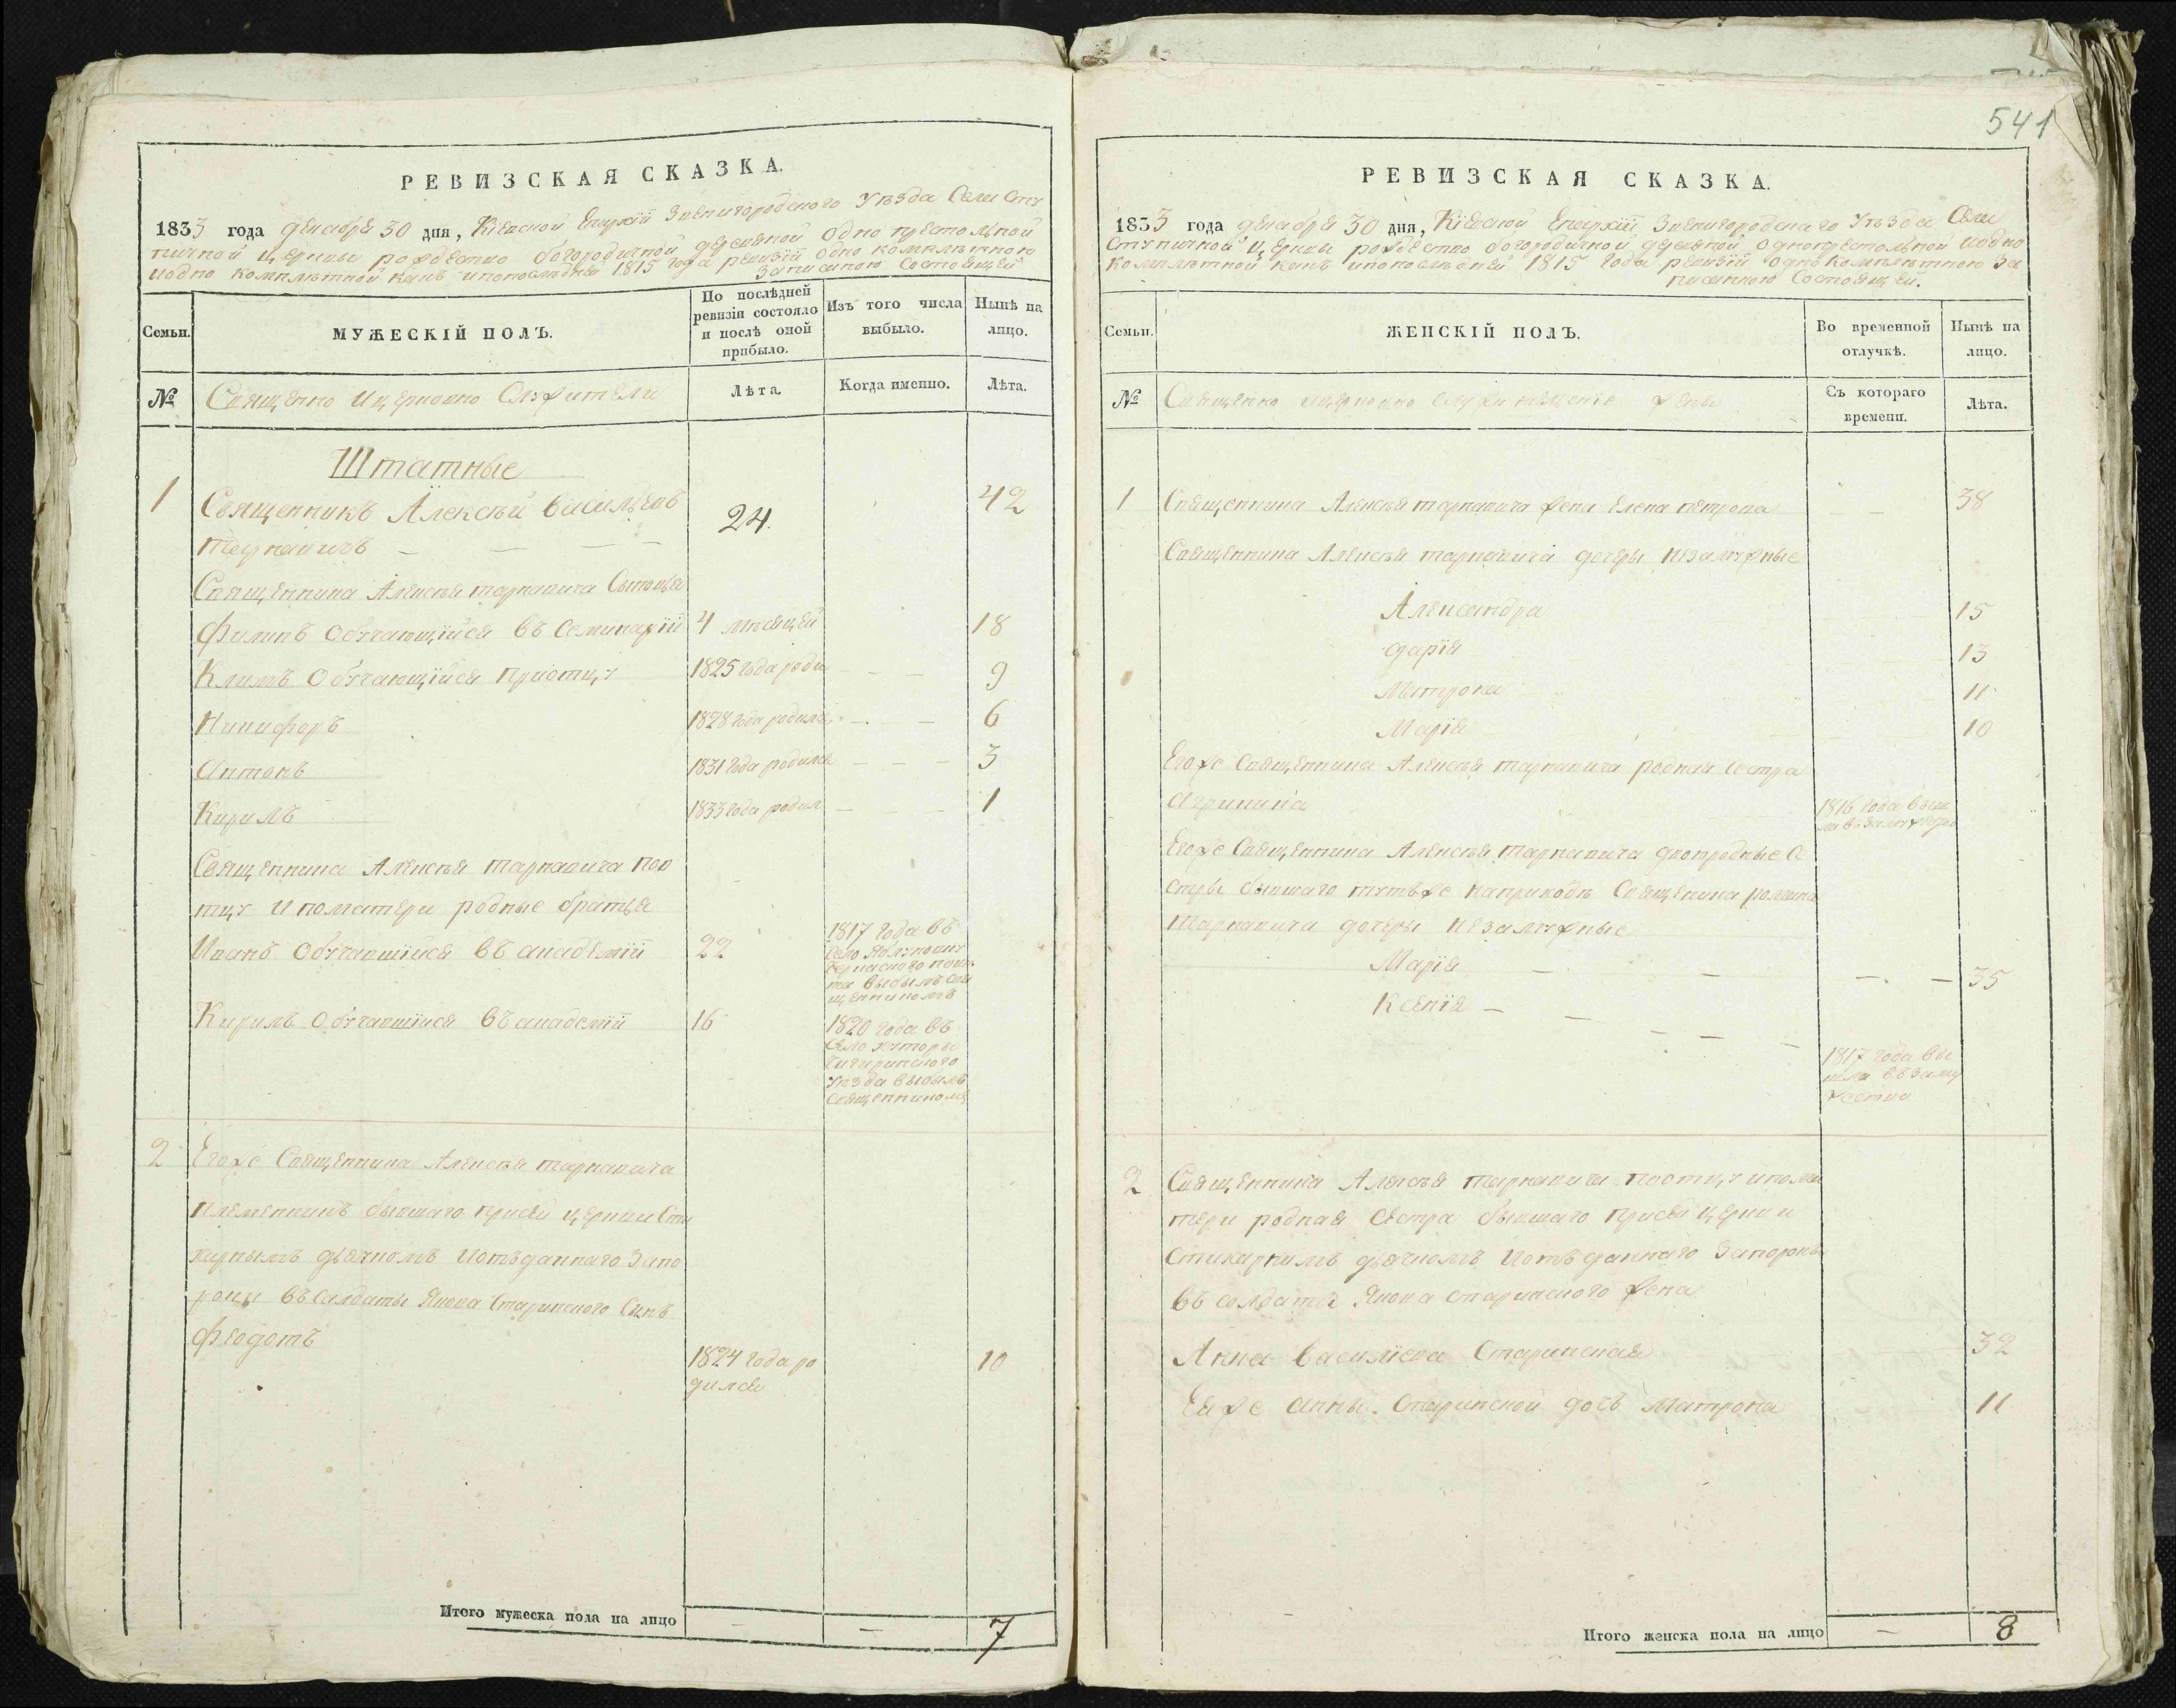 РЕВИЗСКАЯ СКАЗКА.
1833 года декабря 30 дня, Кіевской Епархіи Звенигородского Уѣзда Села Сту
пичной церквы рождество богородичной деревяной однопрестольной
иодно комплѣтной какъ ипопослѣдней 1815 года ревизіи одно комплѣтною
записаною Состоящей
Семьи.
МУЖЕСКІЙ ПОЛЪ.
По послѣдней ревизіи состояло и послѣ оной прибыло.
Изъ того числа выбыло.
Нынѣ на лицо.
№
Священно Ицерковно Служители
Лѣта.
Когда именно.
Лѣта.
Штатные
1 Священникъ Алексѣй Васильевъ 24. 42
Тарнавичъ
Священника Алексѣя тарнавича Сыновья
Филипъ Обучающійся въ Семинаріи 4 мѣсяцей 18
Климъ Обучающійся приотцу 1825 года роди 9
Никифоръ 1828 года родился 6
Антонъ 1831 года родился 3
Кирилъ 1833 года родил 1
Священника Алексѣя тарнавича поо
тцу ипоматери родные братья
Иванъ Обучавшійся въ академіи 22
1817 года въ
село
та выбылъ свя
щенникомъ
Кирилъ Обучавшійся въ академіи 16
1820 года въ
село хуторы
Чигиринского
Уѣзда выбылъ
священникомъ
2 Егоже Священника Алексѣя тарнавича
племенникъ бывшаго присей церкви Сти
харнымъ дьячкомъ Иотъданнаго Запо
роки въ салдаты Якова Старинского Сынъ
Феодотъ
1824 года ро
дился
10
Итого мужеска пола на лицо — — 7
541
РЕВИЗСКАЯ СКАЗКА.
1833 года декабря 30 дня, Кіевской Епархіи Звенигородскаго Уѣзда Села
Ступичной церквы рождество богородичной деревяной однопрестольной иодно
комплѣтной какъ ипопослѣдней 1815 года ревизіи однокомплѣтною за
писанною Состоящей.
Семьи.
ЖЕНСКІЙ ПОЛЪ.
Во временной отлучкѣ.
Нынѣ на лицо.
№
Священно ицерковно служителскіе жены
Съ котораго времени.
Лѣта.
1 Священника Алексѣя тарнавича жена Елена петрова 38
Священника Алексѣя тарнавича дочеры незамужные
Александра 15
Дарія 13
Матрона 11
Марія 10
Егоже Священника Алексѣя тарнавича родная сестра
Агрипина
1816 года выш
ла въ замужеств
Егоже Священника Алексѣя тарнавича двоюродные се
стры бывшаго тутъже наприходѣ Священика романа
Тарнавича дочеры незамужные
Марія — — — — 35
Ксенія — — — — —
1817 года вы
шла въ заму
жество
2 Священника Алексѣя тарнавича поотцу ипома
тери родная сестра бывшаго присей церкви
Стихарнымъ дьячкомъ Иотъданнаго Запороки
въ солдаты Якова старинского жена
Анна Василіева Старинская 32
Еяже Анны Старинской дочь Матрона 11
Итого женска пола на лицо — 8